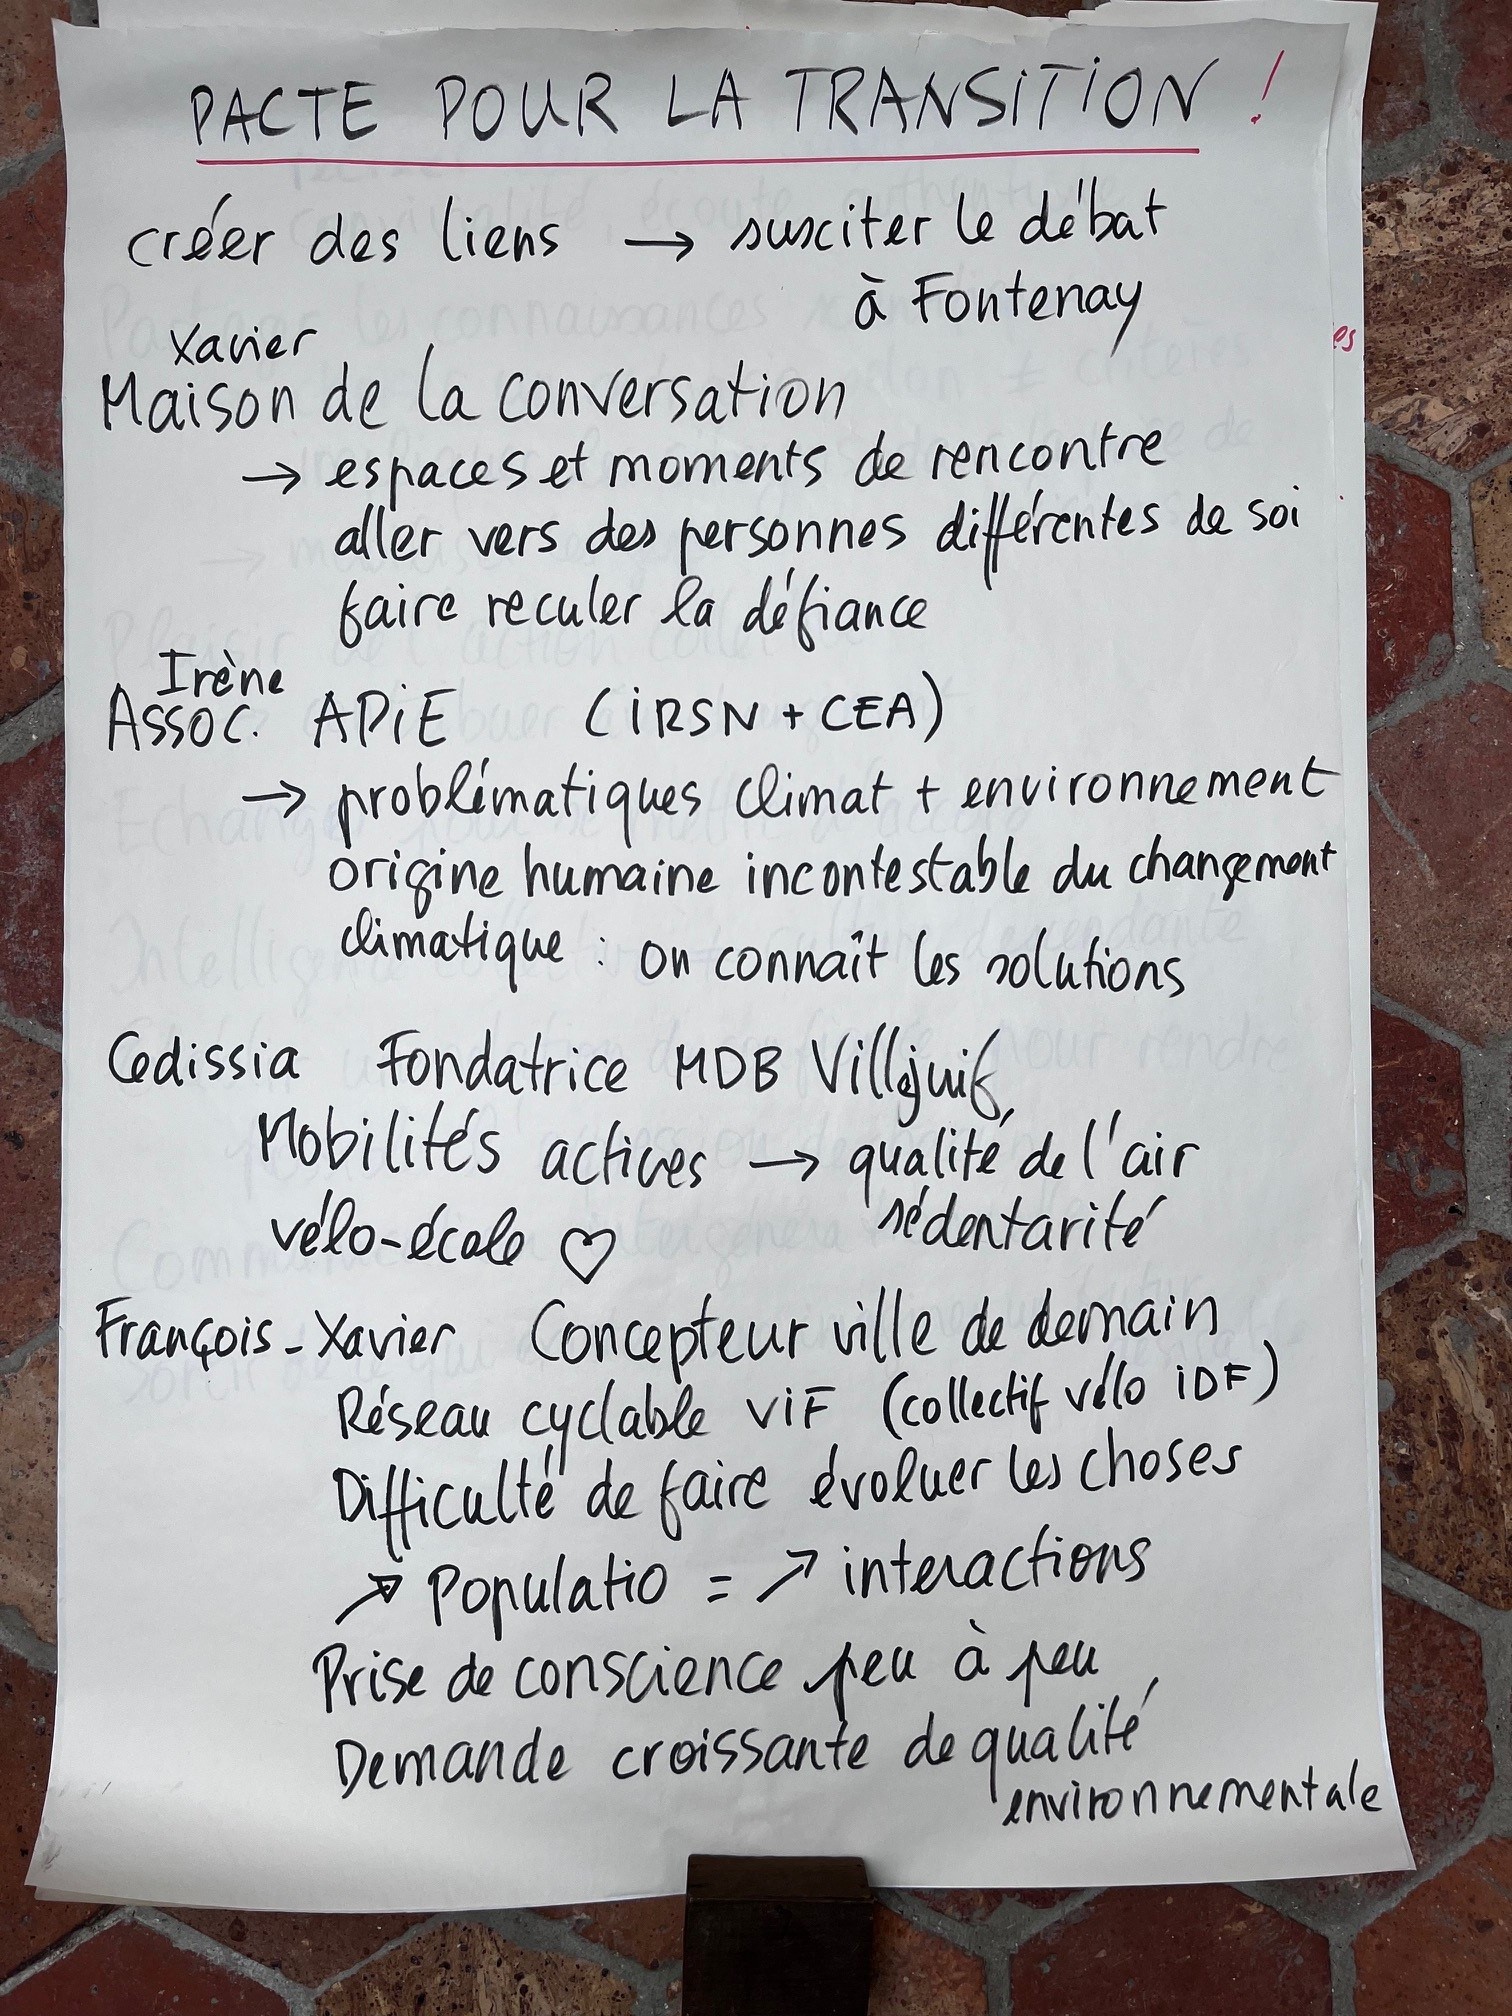 PACTE POUR LA TRANSITION !
créer des liens → susciter le débat
à Fontenay
Xavier
Maison de la conversation
→ espaces et moments de rencontre
aller vers des personnes différentes de soi
faire reculer la défiance
Irène
Assoc. APiE (iRSN + CEA)
→ problématiques climat + environnement
origine humaine incontestable du changement
climatique : on connaît les solutions
Cedissia Fondatrice MDB Villejuif
Mobilités actives → qualité de l'air
vélo-école ♡ sédentarité
François-Xavier Concepteur ville de demain
Réseau cyclable ViF (collectif vélo iDF)
Difficulté de faire évoluer les choses
↗ Populatio = ↗ interactions
Prise de conscience peu à peu
Demande croissante de qualité
environnementale